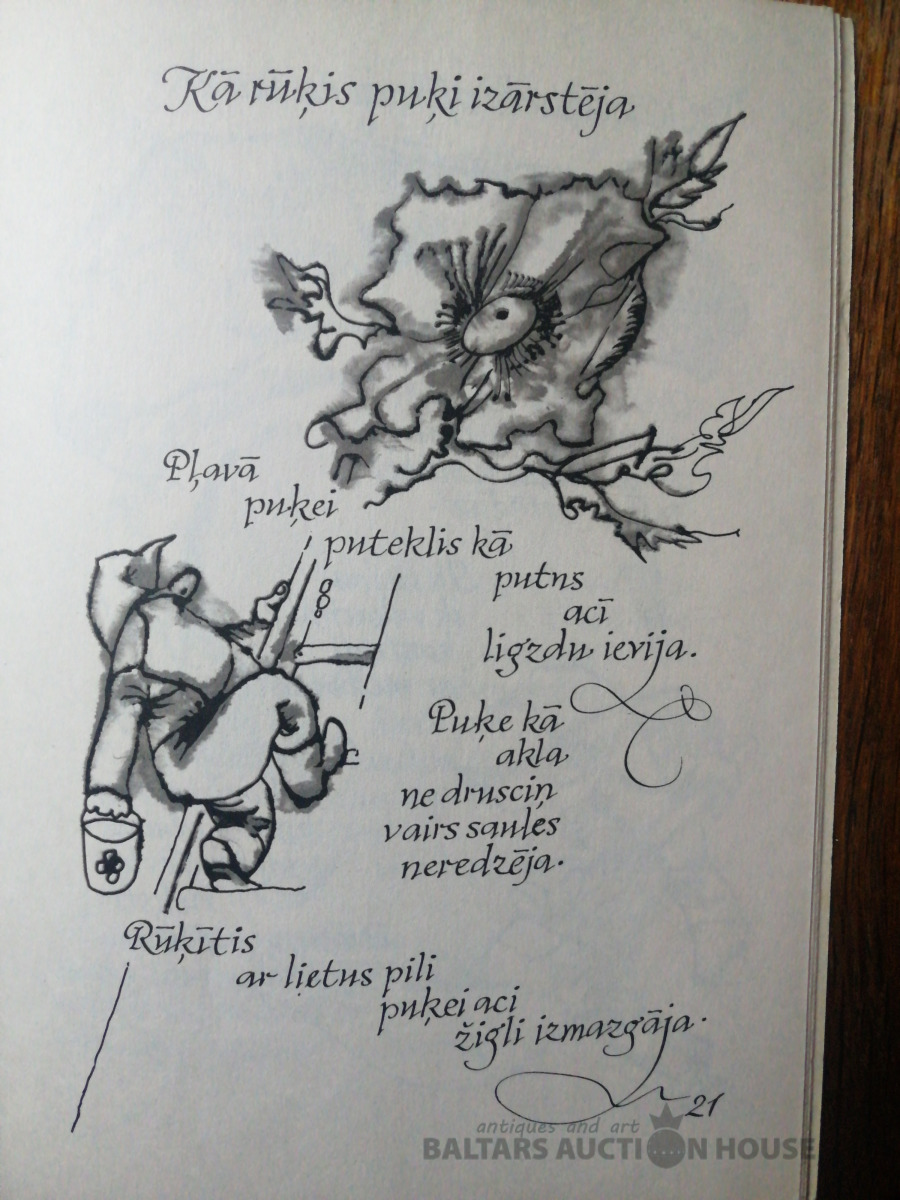 Kā rūķis puķi izārstēja
Pļavā
puķei
puteklis kā
putns
acī
ligzdu ievija.
Puķe kā
akla
ne drusciņ
vairs saules
neredzēja.
Rūķītis
ar lietus pili
puķei aci
žigli izmazgāja.
21
antiques and art
BALTARS AUCTION HOUSE